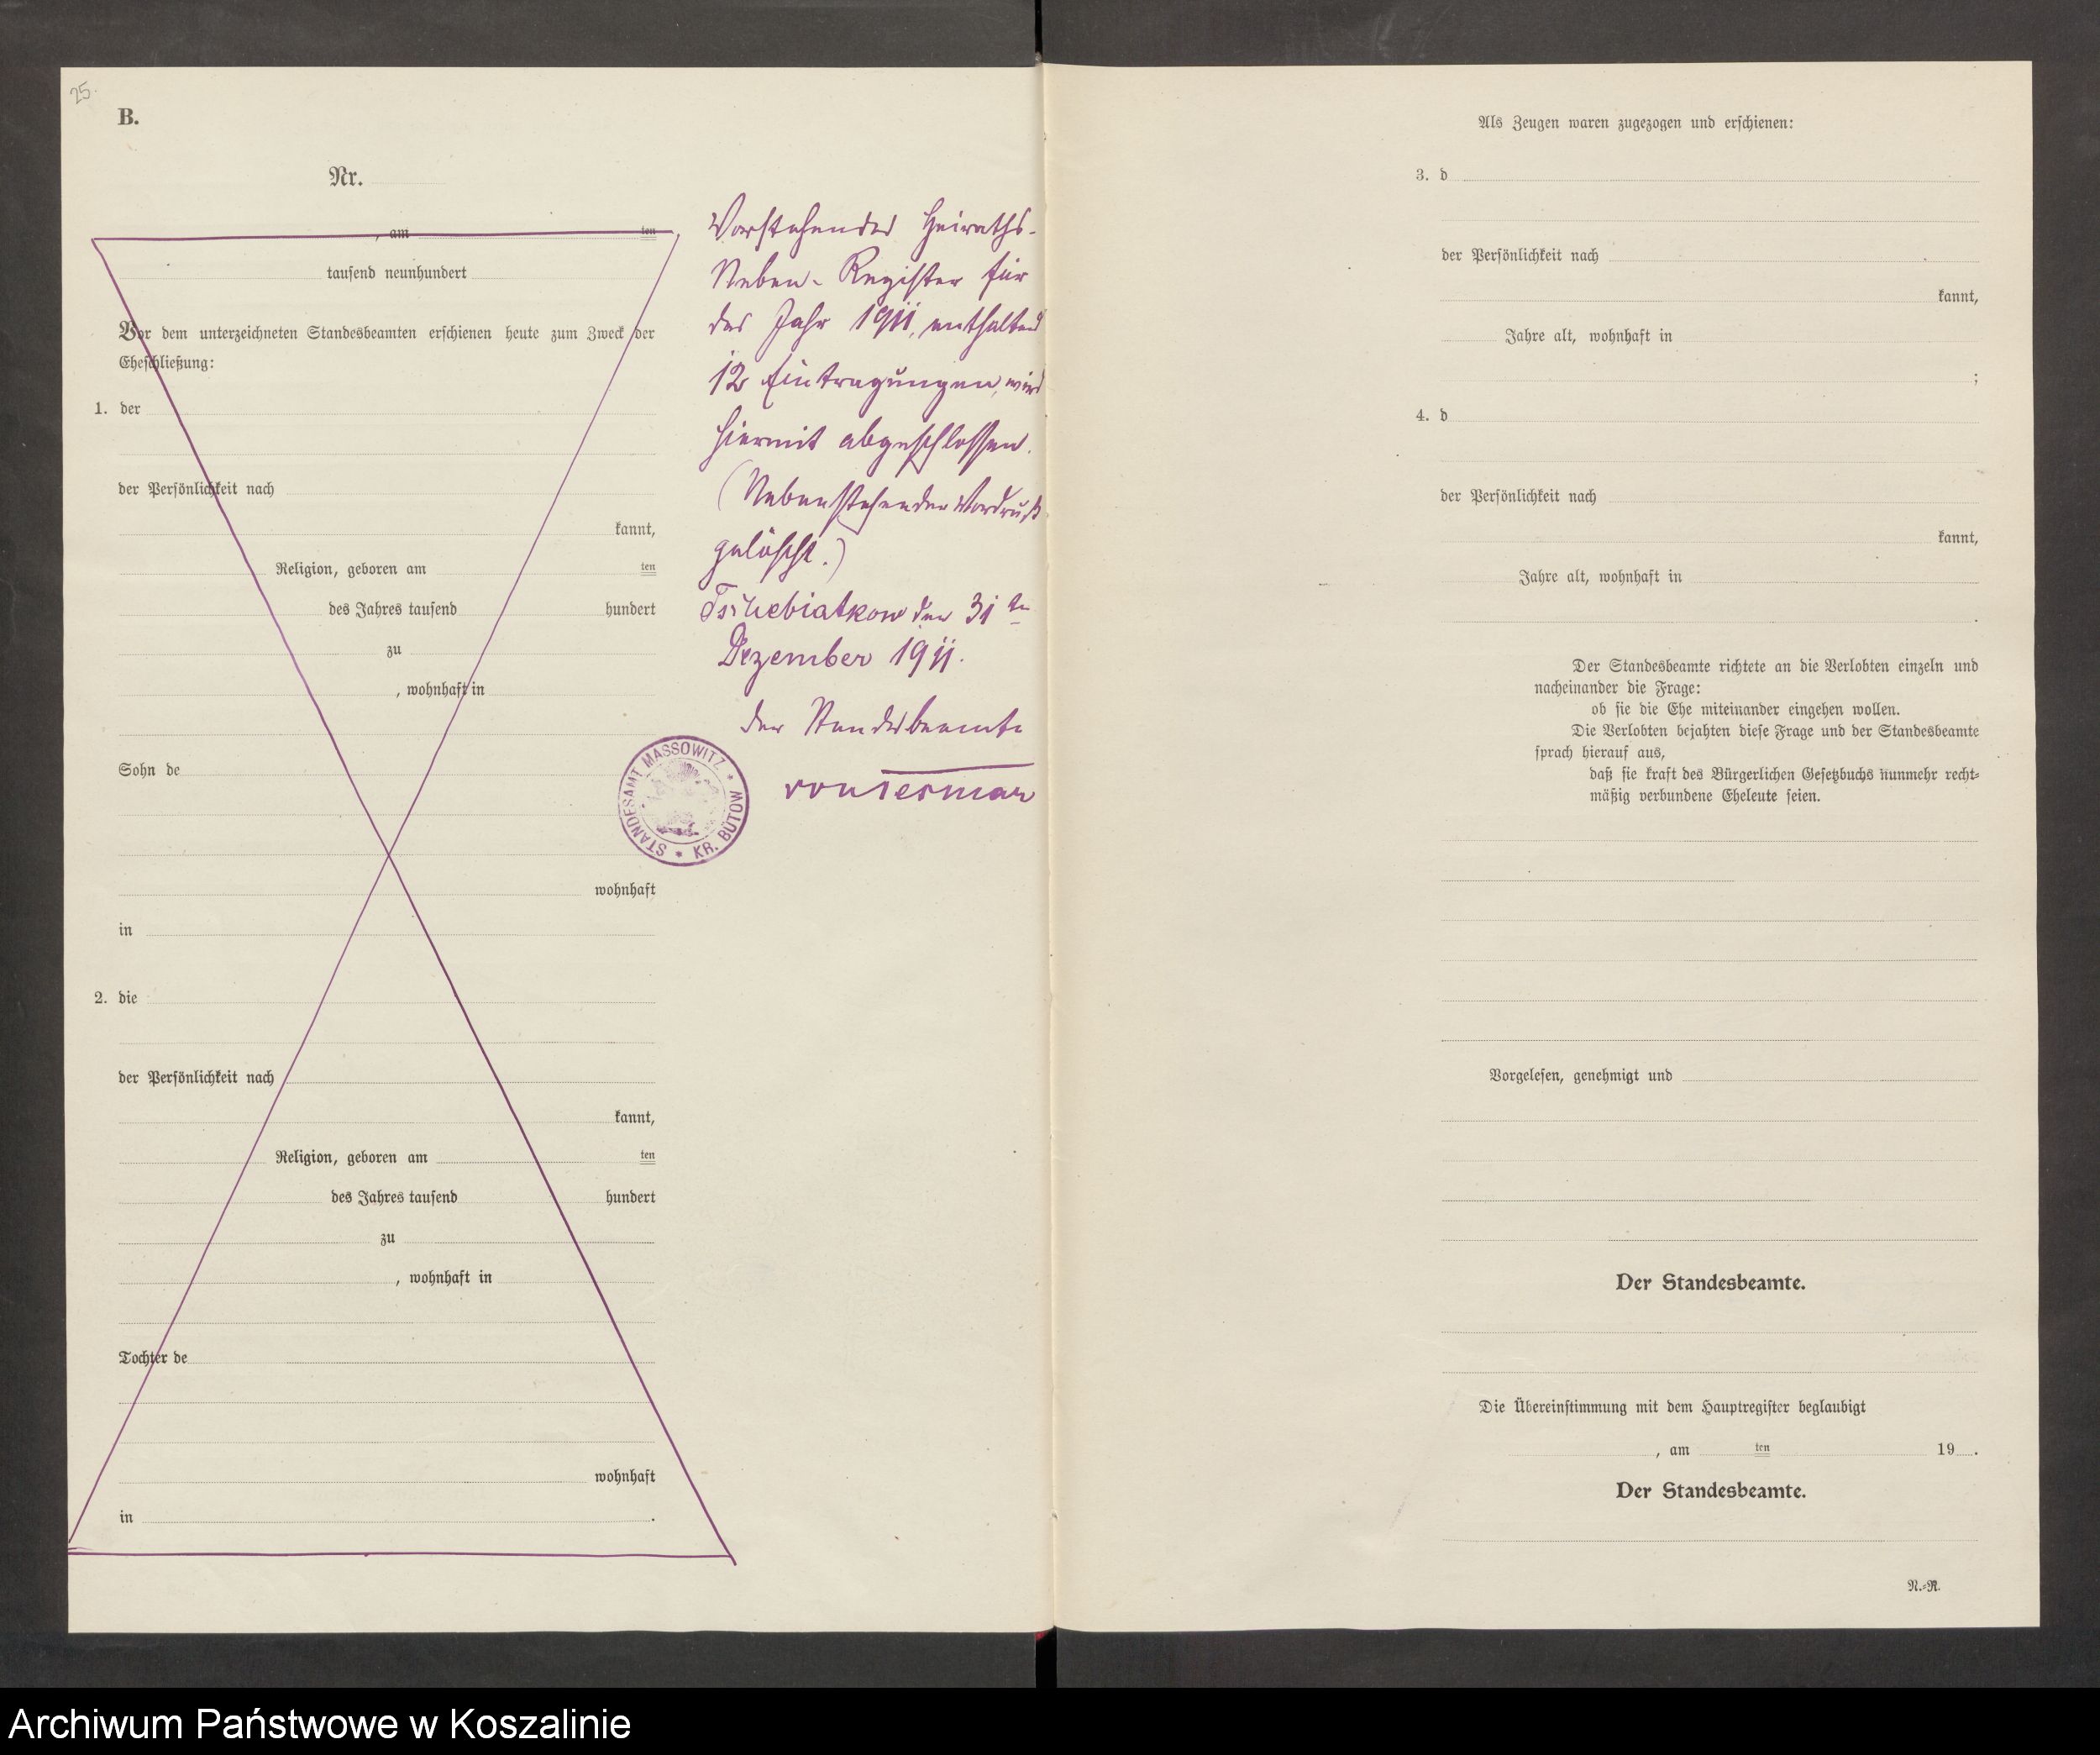 25.
B.
Nr.
, am ten
tausend neunhundert
Vor dem unterzeichneten Standesbeamten erschienen heute zum Zweck der
Eheschließung:
1. der
der Persönlichkeit nach
kannt,
Religion, geboren am ten
des Jahres tausend hundert
zu
, wohnhaft in
Sohn de
wohnhaft
in
2. die
der Persönlichkeit nach
kannt,
Religion, geboren am ten
des Jahres tausend hundert
zu
, wohnhaft in
Tochter de
wohnhaft
in .
Vorstehendes Heiraths-
Neben-Register für
das Jahr 1911, enthaltend
12 Eintragungen, wird
hiermit abgeschlossen.
(Nebenstehender Vordruck
gelöscht.)
Tschebiatkow den 31 ten
Dezember 1911.
der Standesbeamte
STANDESAMT MASSOWITZ * KR. BÜTOW *
Als Zeugen waren zugezogen und erschienen:
3. d
der Persönlichkeit nach
kannt,
Jahre alt, wohnhaft in
;
4. d
der Persönlichkeit nach
kannt,
Jahre alt, wohnhaft in
.
Der Standesbeamte richtete an die Verlobten einzeln und
nacheinander die Frage:
ob sie die Ehe miteinander eingehen wollen.
Die Verlobten bejahten diese Frage und der Standesbeamte
sprach hierauf aus,
daß sie kraft des Bürgerlichen Gesetzbuchs nunmehr recht-
mäßig verbundene Eheleute seien.
Vorgelesen, genehmigt und
Der Standesbeamte.
Die Übereinstimmung mit dem Hauptregister beglaubigt
, am ten 19 .
Der Standesbeamte.
N.-R.
Archiwum Państwowe w Koszalinie